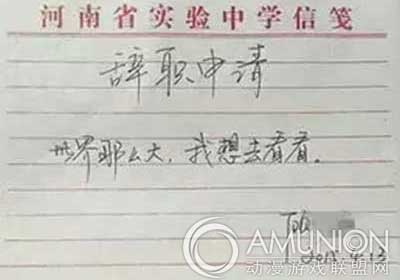 河南省实验中学信笺
辞职申请
世界那么大，我想去看看。
AMUNION
动漫游戏联盟网